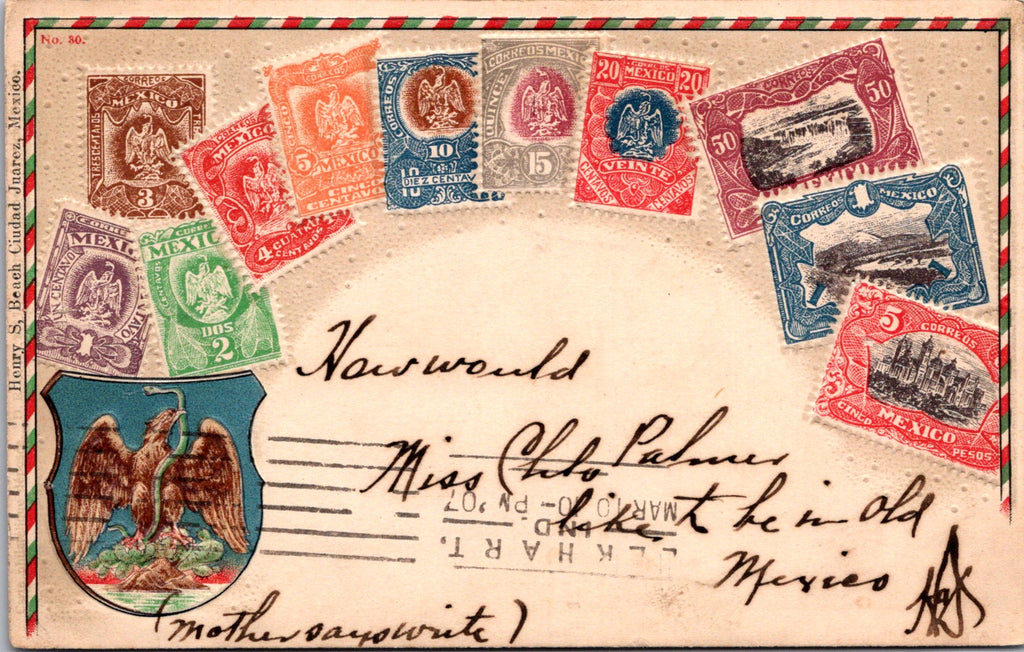 No. 30.
Henry S. Beach Ciudad Juarez, Mexico.
CORREOS
MEXICO
TRES CENTAVOS
3
CORREOS
MEXICO
4 CUATRO
CENTAVOS
CORREOS
5 MEXICO
CINCO
CENTAVOS
CORREOS
10
DIEZ CENTAV
CORREOS MEXI
QUINCE
15
20 CORREOS 20
MEXICO
VEINTE
CENTAVOS CENTAVOS
CORREOS
50 50
CORREOS MEXICO
1 1
5 CORREOS
MEXICO
CINCO PESOS
CORRE
MEXI
UN CENTAVO
1
CORRE
MEXIC
CENTAVOS
DOS
2
How would
Miss Chlo Palmer
like to be in Old
Mexico
(mother says write)
ELKHART,
IND
MAR 10 -PM '07